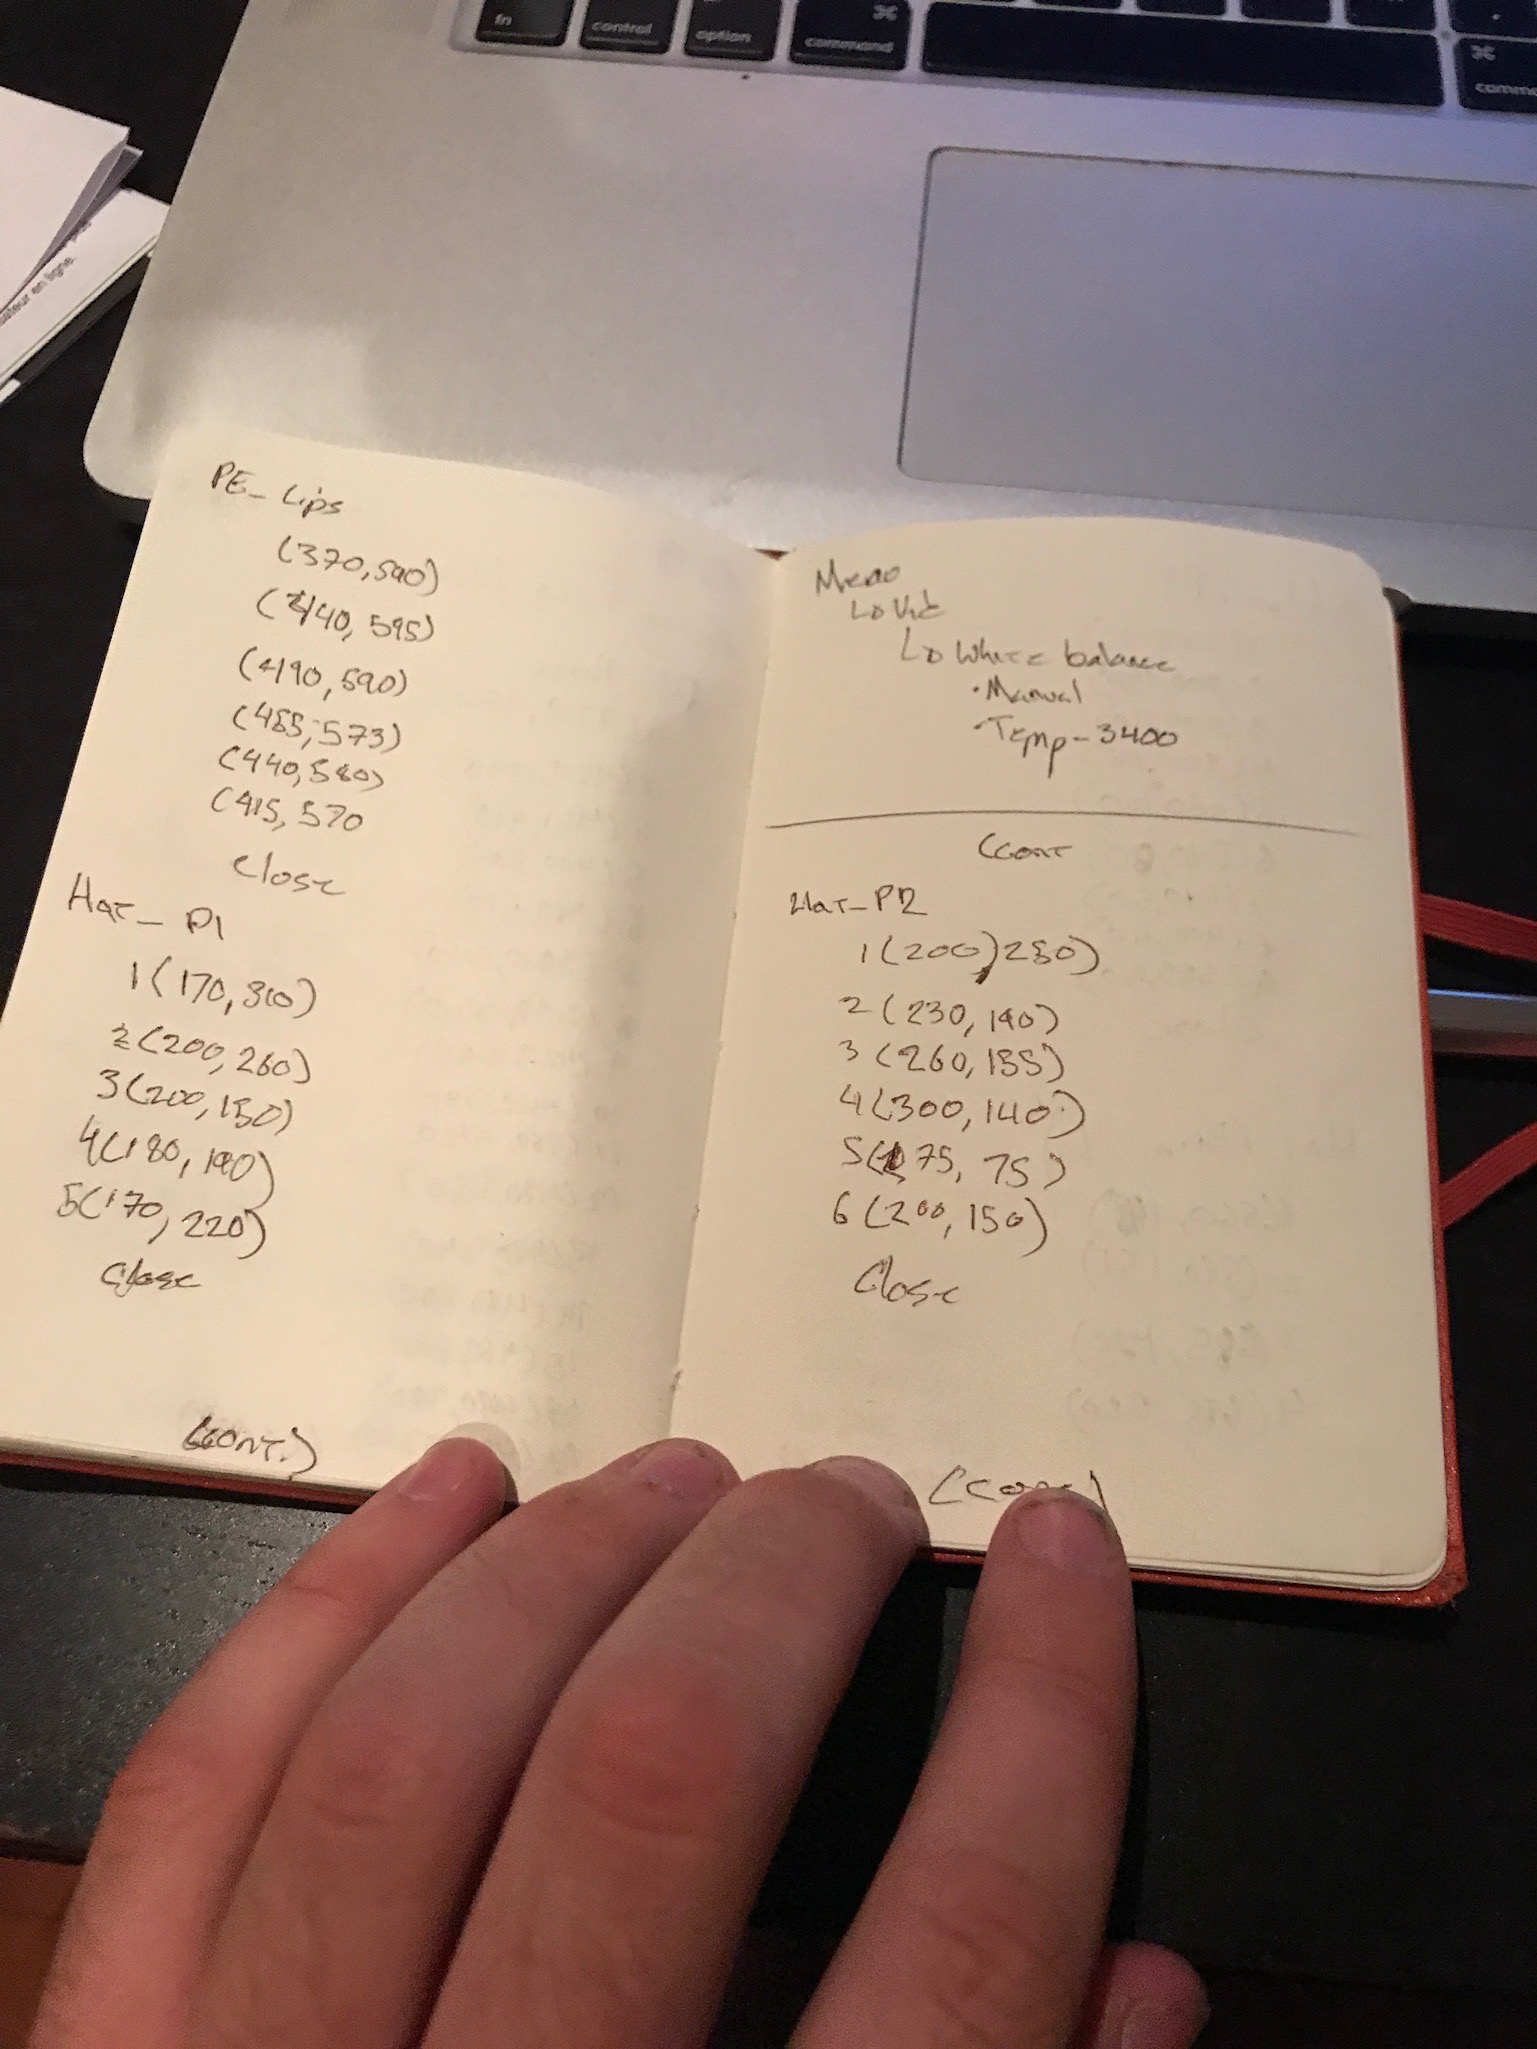 fn
control
option
⌘
command
⌘
ateur en ligne.
PE_ Lips
(370,590)
(440, 595)
(490,590)
(455,573)
(440,580)
(415, 570
close
Hat_ P1
1(170,310)
2(200,260)
3(200,150)
4(180,190)
5(170, 220)
Close
(CONT.)
Menu
↳ Vid
↳ White balance
• Manual
• Temp- 3400
(cont
Hat_P2
1(200,250)
2(230,190)
3(260,155)
4(300,140)
5(175, 75)
6(200,150)
Close